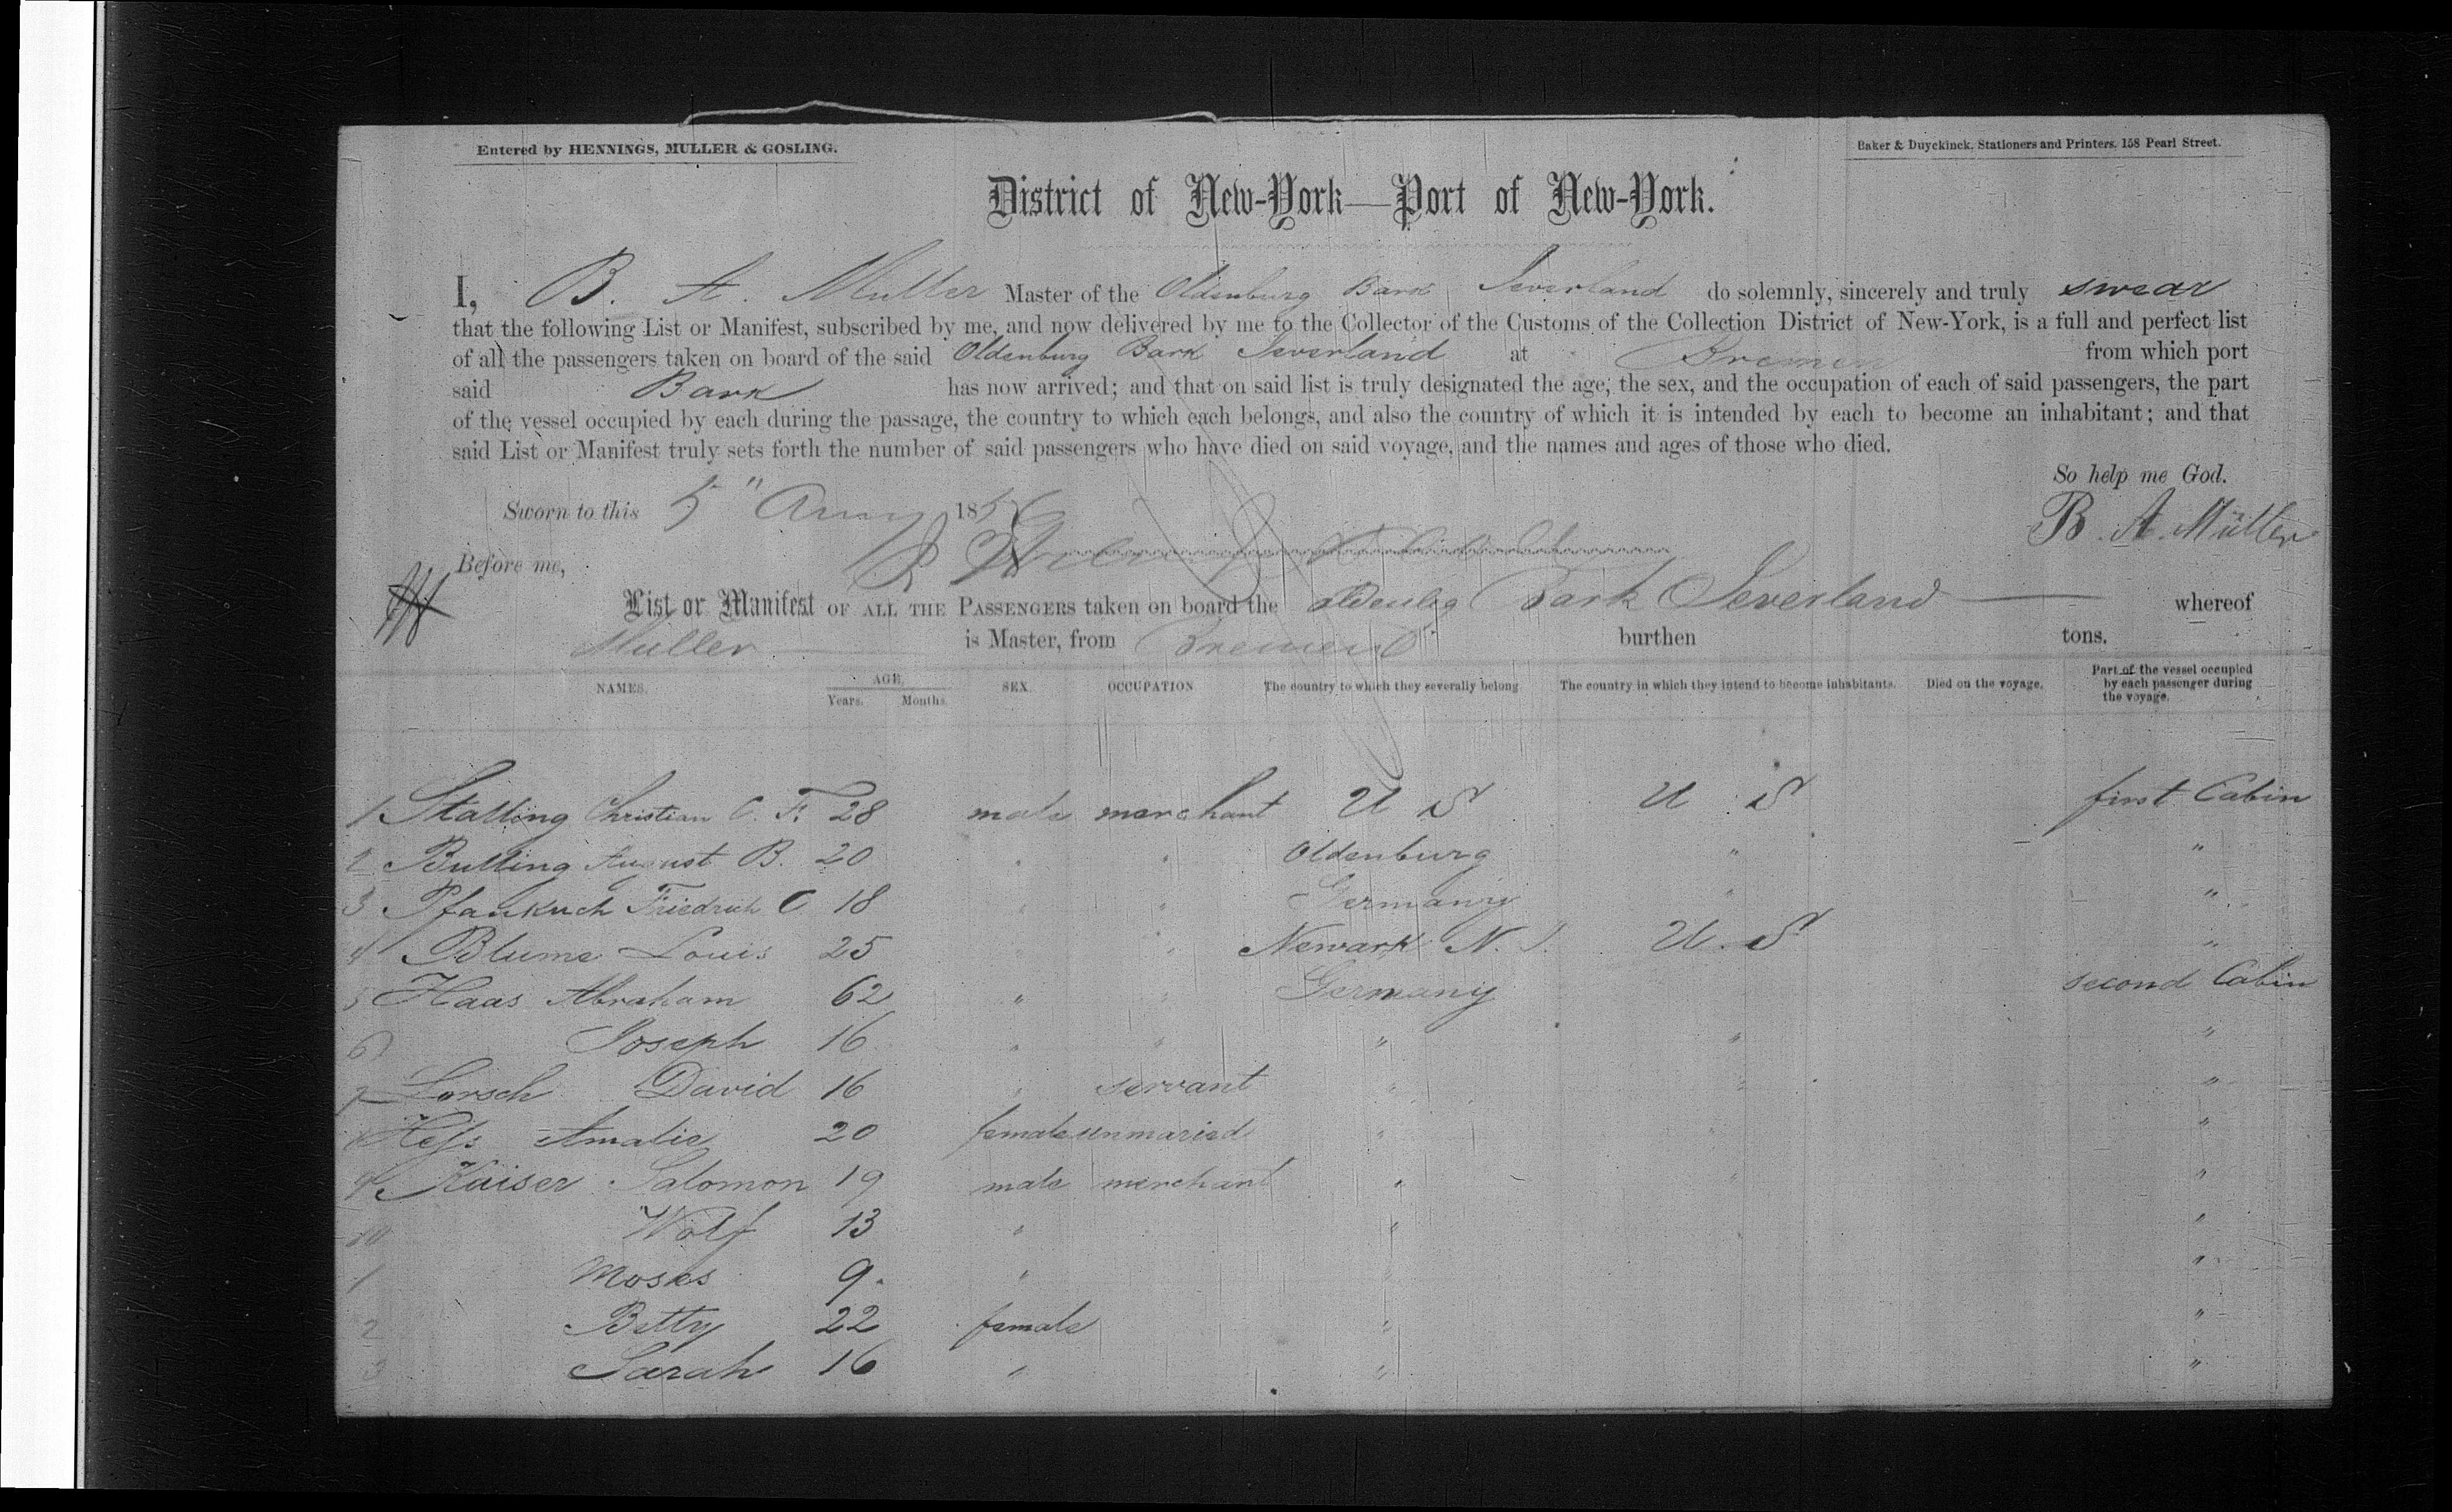 Entered by HENNINGS, MULLER & GOSLING.
Baker & Duyckinck, Stationers and Printers, 158 Pearl Street.
District of New-York—Port of New-York.
I, B. A. Muller Master of the Oldenburg Bark Jeverland do solemnly, sincerely and truly swear
that the following List or Manifest, subscribed by me, and now delivered by me to the Collector of the Customs of the Collection District of New-York, is a full and perfect list
of all the passengers taken on board of the said Oldenburg Bark Jeverland at Bremen from which port
said Bark has now arrived; and that on said list is truly designated the age, the sex, and the occupation of each of said passengers, the part
of the vessel occupied by each during the passage, the country to which each belongs, and also the country of which it is intended by each to become an inhabitant; and that
said List or Manifest truly sets forth the number of said passengers who have died on said voyage, and the names and ages of those who died.
So help me God.
Sworn to this 5" 185
B. A. Müller
Before me,
List or Manifest OF ALL THE PASSENGERS taken on board the Oldenbg Bark Jeverland whereof
Muller is Master, from Bremen burthen tons.
NAMES. AGE. Years. Months. SEX. OCCUPATION The country to which they severally belong. The country in which they intend to become inhabitants. Died on the voyage. Part of the vessel occupied by each passenger during the voyage.
1 Stalling Christian C. F. 28 male merchant U S U S first Cabin
2 Bulling August B. 20 " " Oldenburg " "
3 Pfankuch Friedrich C 18 " " Germany " "
4 Blume Louis 25 " " Newark N. J. U. S "
5 Haas Abraham 62 " " Germany second Cabin
6 Joseph 16 " " " " "
7 Lorsch David 16 " servant " " "
Heſs Amalie 20 female unmaried " " "
9 Kaiser Salomon 19 male merchant " " "
10 Wolf 13 " " "
1 Moses 9. " "
2 Betty 22 female " "
3 Sarah 16 " " "